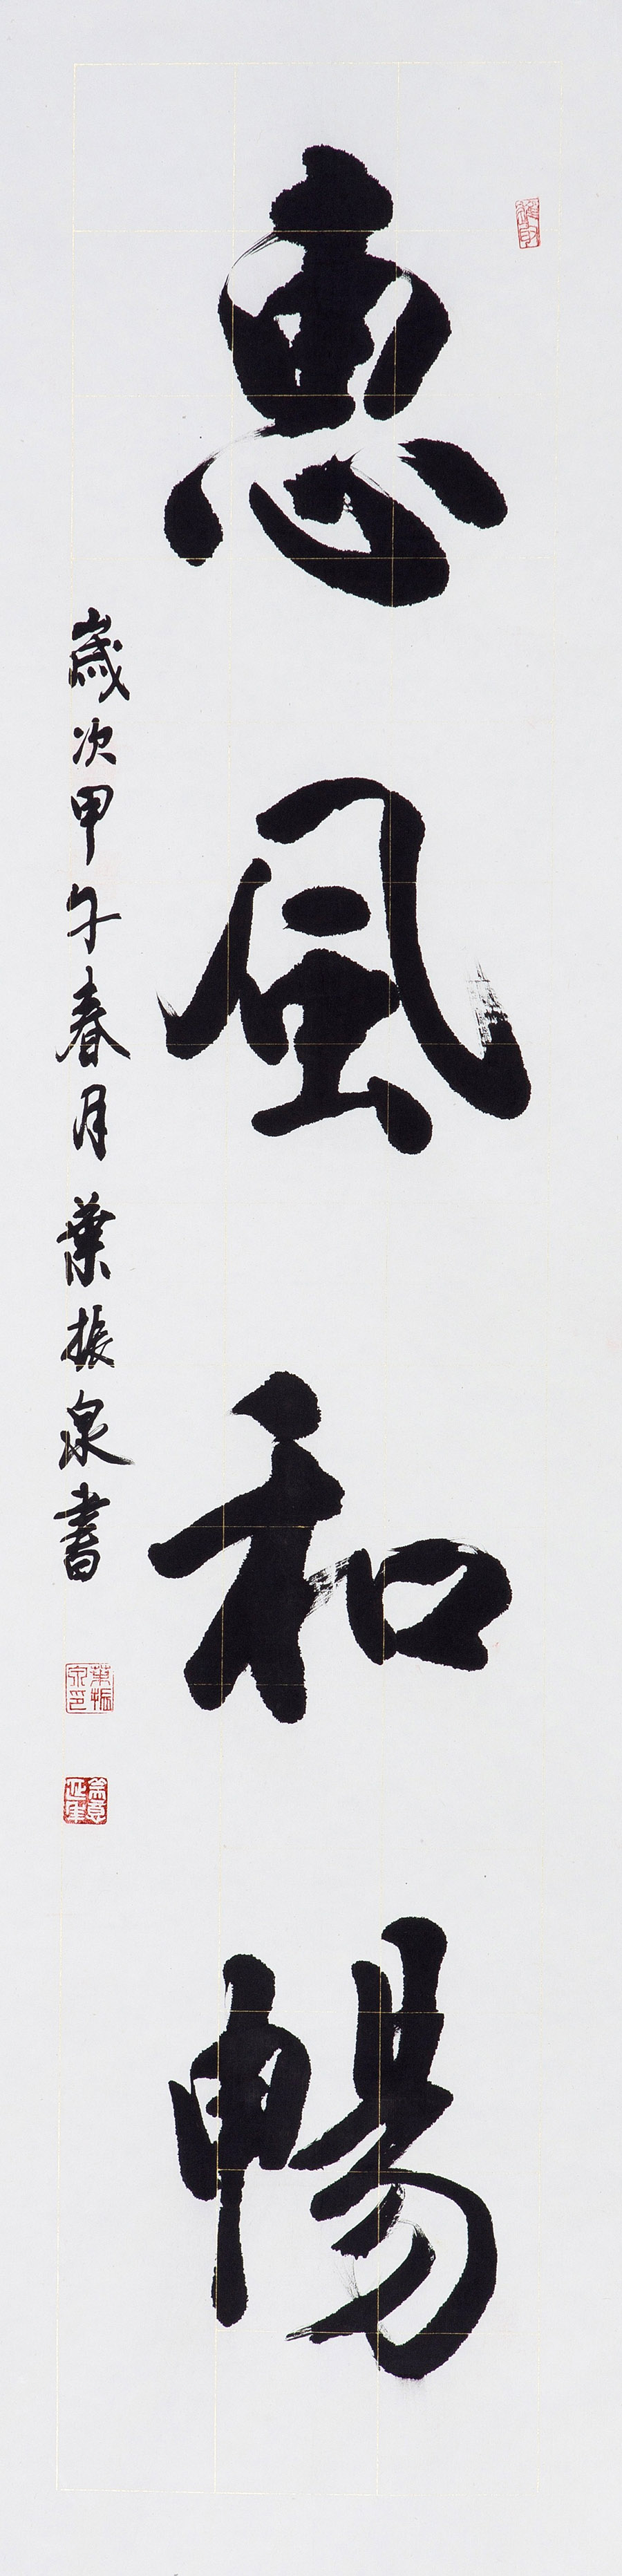 惠風和暢
歲次甲午春月 葉振泉書
葉振泉印